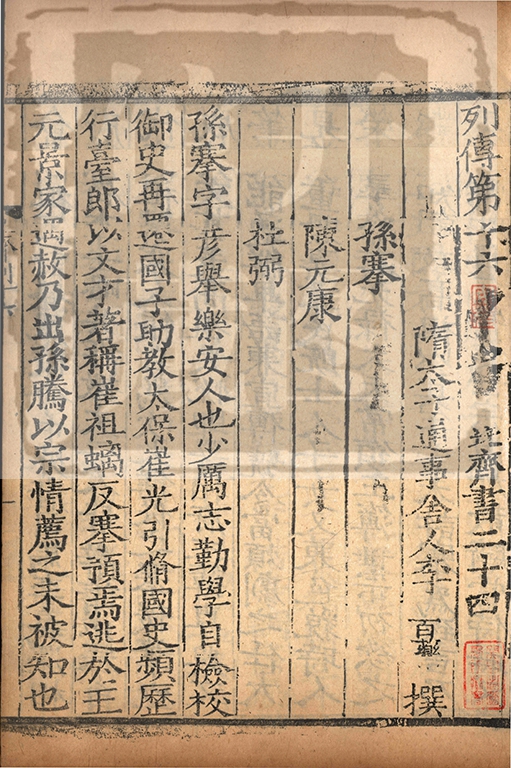 列傳第十六 北齊書二十四
隋太子通事舍人李 百藥 撰
孫搴
陳元康
杜弼
孫搴字彥舉樂安人也少厲志勤學自檢校
御史再遷國子助教太保崔光引脩國史頻歷
行臺郎以文才著稱崔祖螭反搴預焉逃於王
元景家遇赦乃出孫騰以宗情薦之未被知也